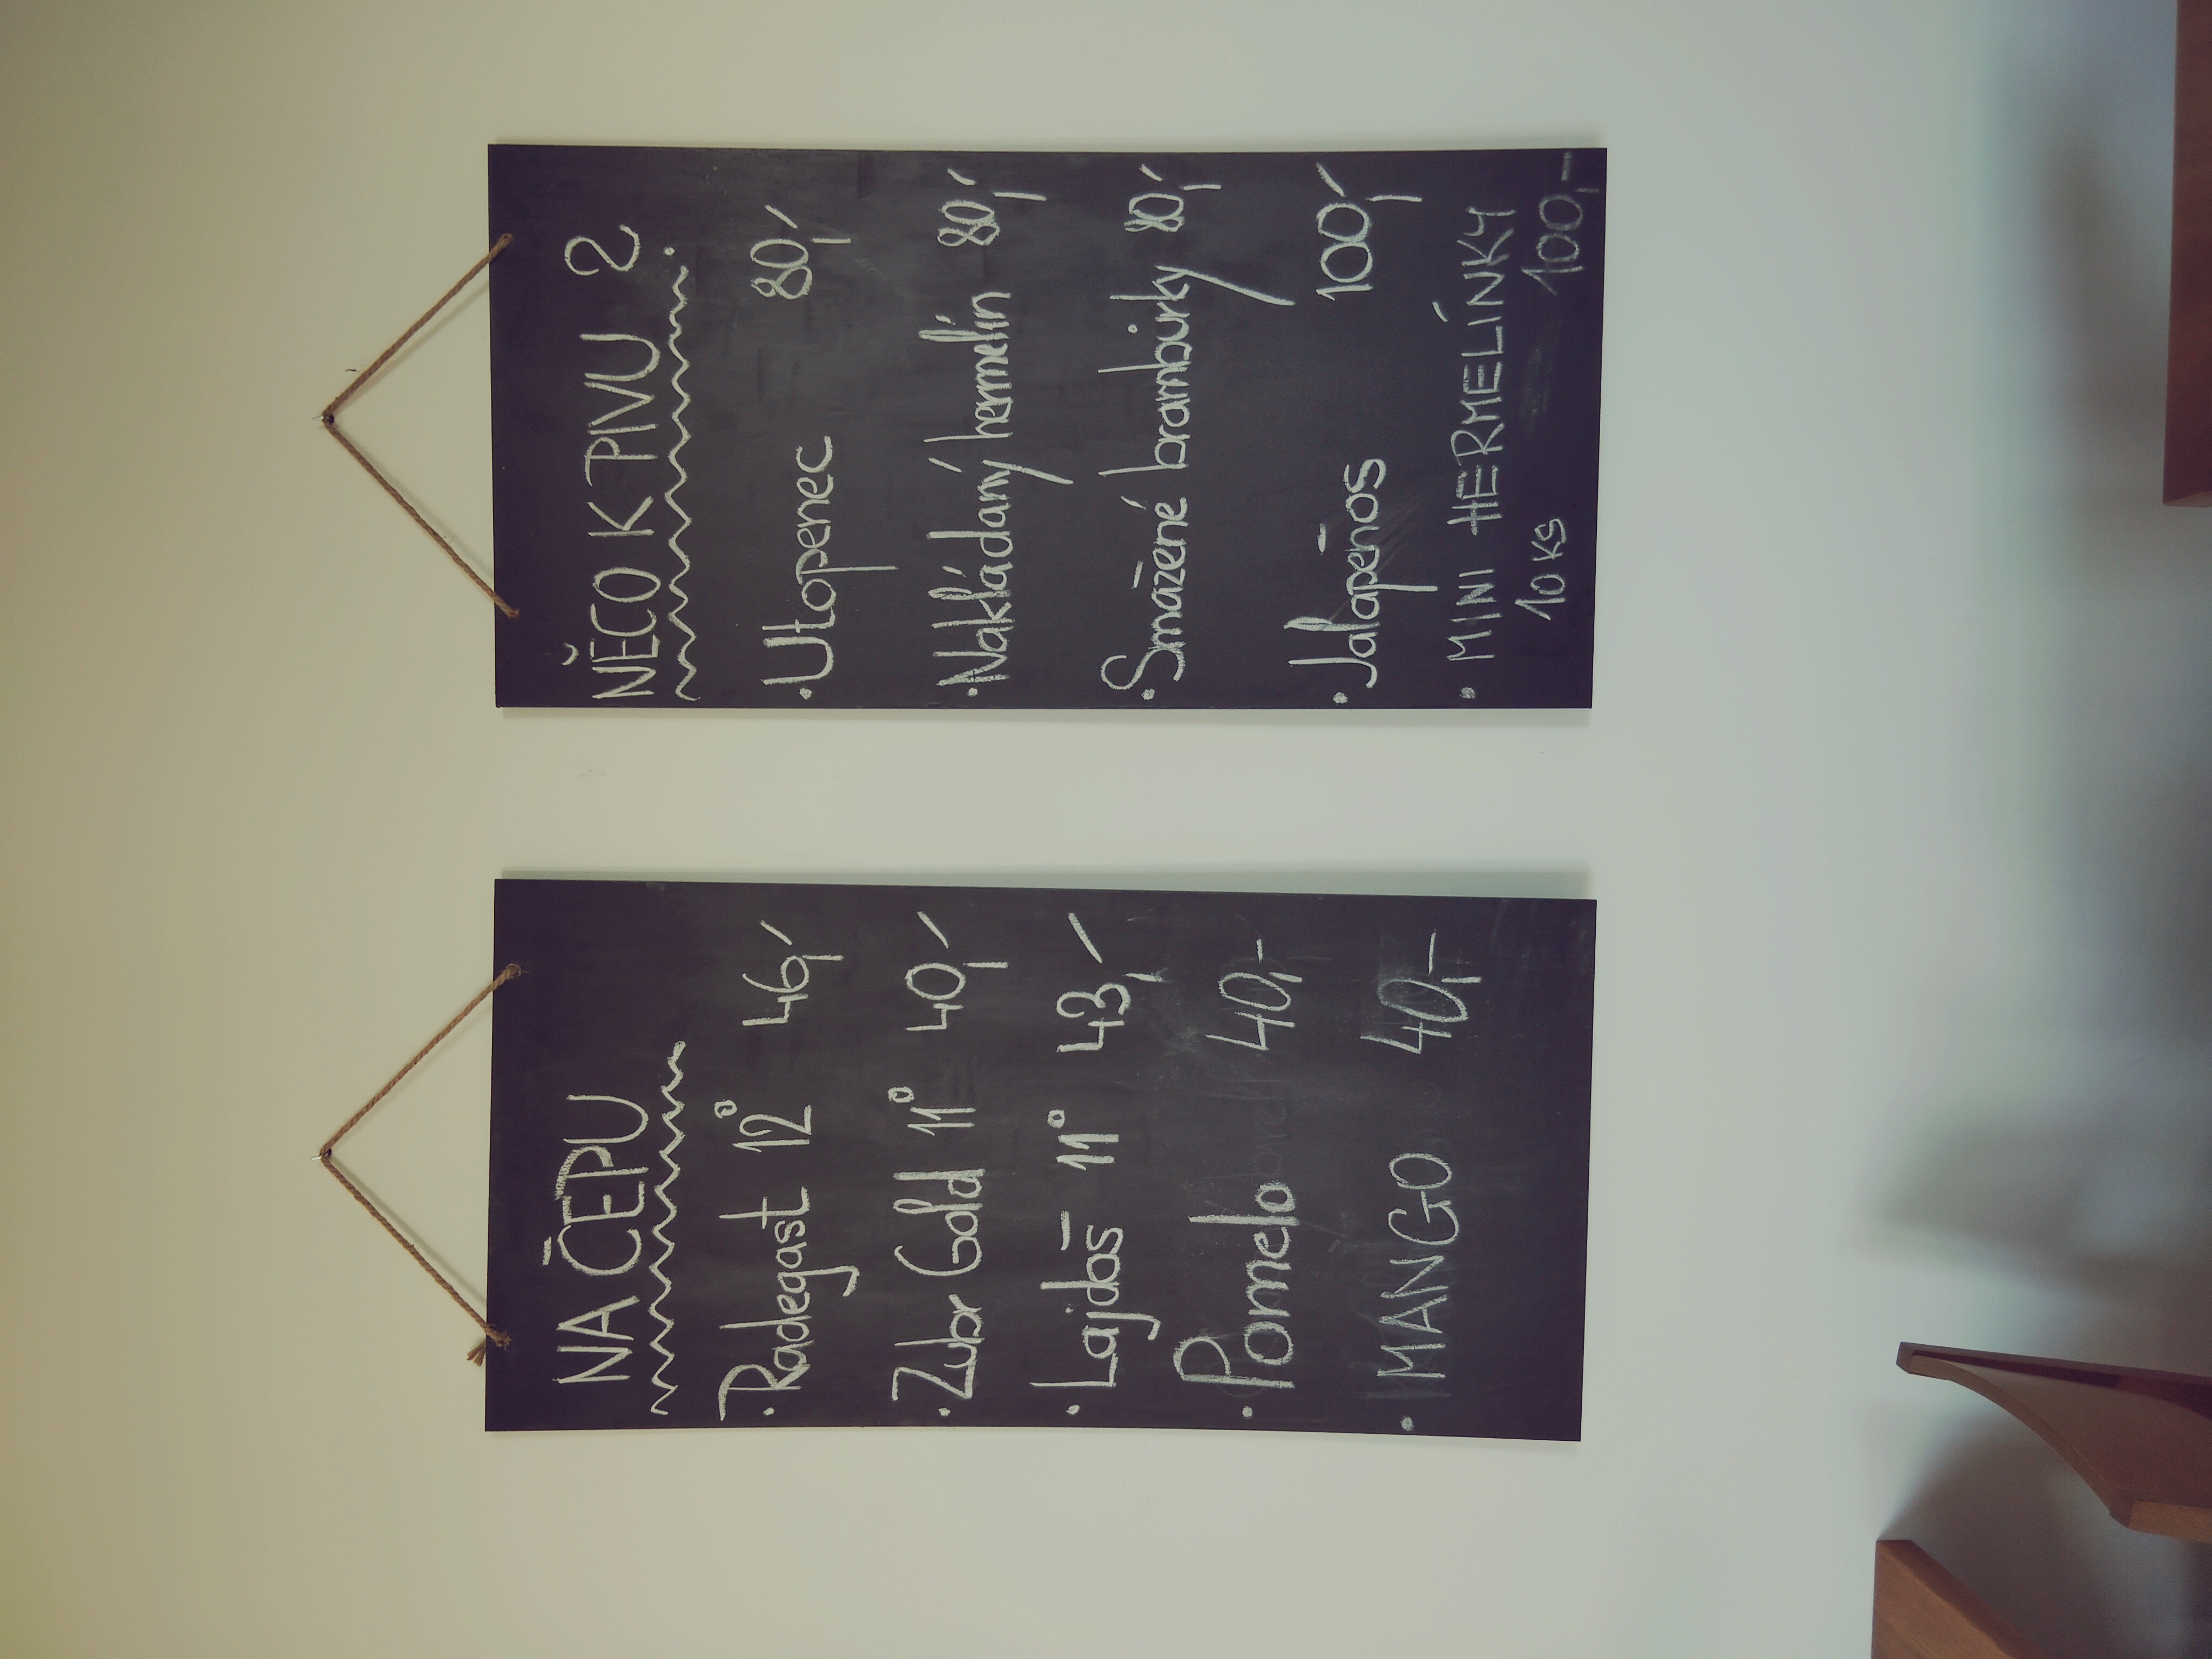 NA ČEPU
• Radegast 12° 46,-
• Zubr Gold 11° 40,-
• Lajdoš 11° 43,-
• Pomelo 40,-
• MANGO 40,-
NĚCO K PIVU ?
• Utopenec 80,-
• Nakládaný hermelín 80,-
• Smažené brambůrky 80,-
• Jalapeños 100,-
• MINI HERMELÍNKY
10 KS 100,-